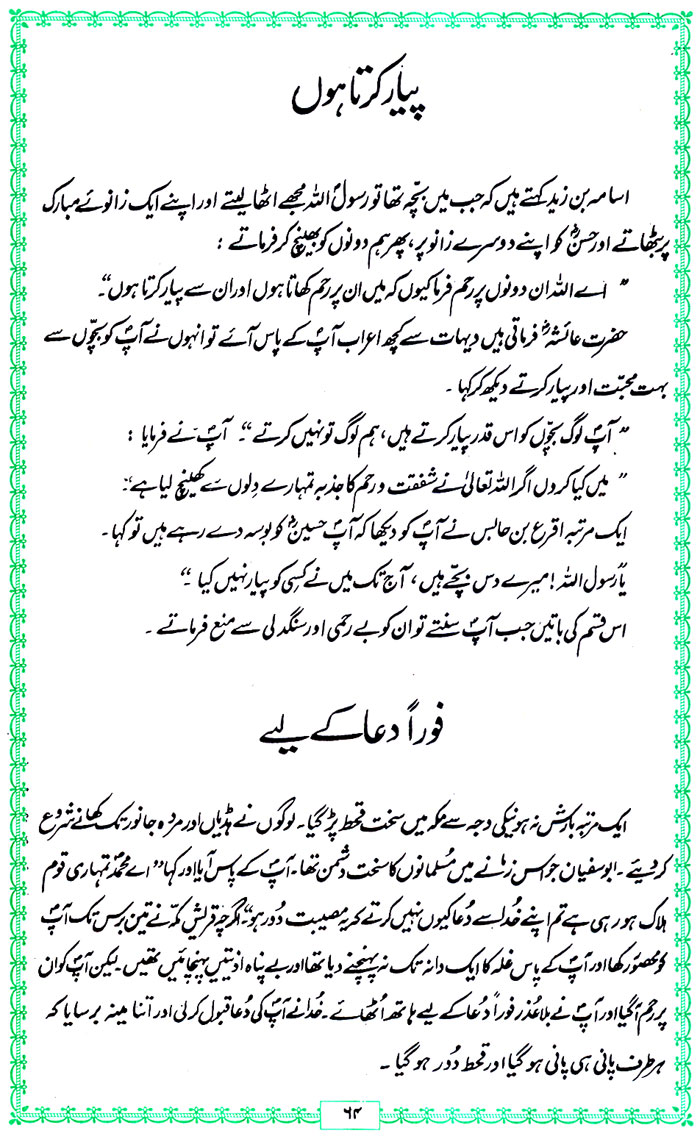 پیار کرتا ہوں
اسامہ بن زید کہتے ہیں کہ جب میں بچّہ تھا تو رسولؐ اللہ مجھے اٹھا لیتے اور اپنے ایک زانوئے مبارک
پر بٹھاتے اور حسنؓ کو اپنے دوسرے زانو پر، پھر ہم دونوں کو بھینچ کر فرماتے :
” اے اللہ ان دونوں پر رحم فرما کیوں کہ میں ان پر رحم کھاتا ہوں اور ان سے پیار کرتا ہوں “۔
حضرت عائشہؓ فرماتی ہیں دیہات سے کچھ اعراب آپؐ کے پاس آئے تو انہوں نے آپؐ کو بچّوں سے
بہت محبّت اور پیار کرتے دیکھ کر کہا ۔
” آپؐ لوگ بچّوں کو اس قدر پیار کرتے ہیں، ہم لوگ تو نہیں کرتے “۔ آپؐ نے فرمایا :
” میں کیا کروں اگر اللہ تعالیٰ نے شفقت و رحم کا جذبہ تمہارے دِلوں سے کھینچ لیا ہے“۔
ایک مرتبہ اقرع بن حابس نے آپؐ کو دیکھا کہ آپؐ حسینؓ کو بوسہ دے رہے ہیں تو کہا ۔
یا رسول اللہ ! میرے دس بچّے ہیں، آج تک میں نے کسی کو پیار نہیں کیا ۔“
اس قسم کی باتیں جب آپؐ سنتے تو ان کو بے رحمی اور سنگدلی سے منع فرماتے ۔
فوراً دعا کے لیے
ایک مرتبہ بارش نہ ہونیکی وجہ سے مکہ میں سخت قحط پڑ گیا ۔ لوگوں نے ہڈیاں اور مردہ جانور تک کھانے شروع
کر دیئے ۔ ابوسفیان جو اس زمانے میں مُسلمانوں کا سخت دشمن تھا۔ آپؐ کے پاس آیا اور کہا ”اے محمدؐ تمہاری قوم
ہلاک ہو رہی ہے تم اپنے خُدا سے دُعا کیوں نہیں کرتے کہ یہ مصیبت دُور ہو“ اگرچہ قریش مکہّ نے تین برس تک آپؐ
کو محصور رکھا اور آپؐ کے پاس غلہ کا ایک دانہ تک نہ پہنچنے دیا تھا اور بے پناہ اذیتیں پہنچائیں تھیں۔ لیکن آپؐ کو ان
پر رحم آگیا اور آپؐ نے بلا عُذر فوراً دُعا کے لیے ہاتھ اُٹھائے ۔ خُدا نے آپؐ کی دُعا قبول کرلی اور اتنا مینہ برسایا کہ
ہر طرف پانی ہی پانی ہو گیا اور قحط دُور ہو گیا ۔
۶۴